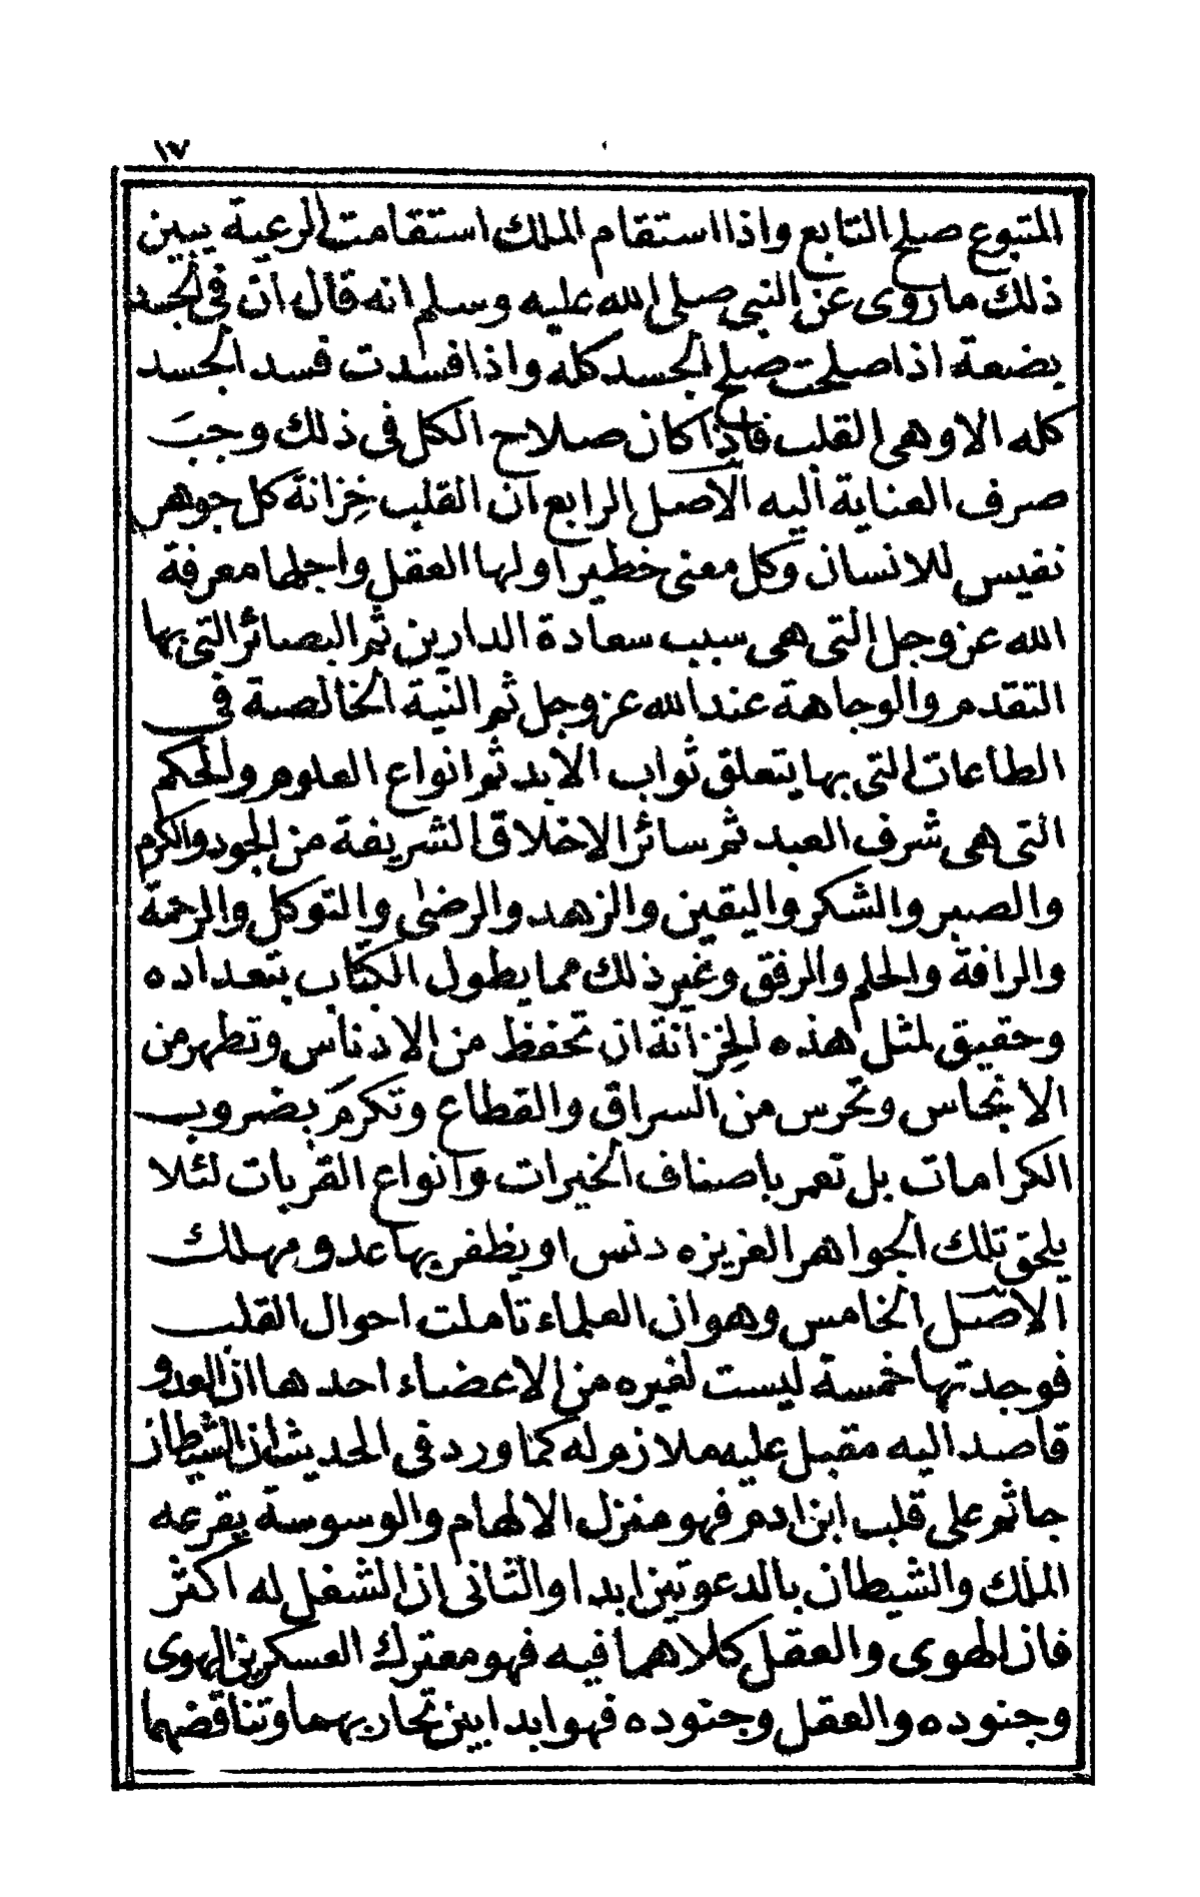 ١٧
المتبوع صلح التابع واذا استقام الملك استقامت الرعية يبين
ذلك ما روى عن النبى صلى الله عليه وسلم انه قال ان فى الجسد
بضعة اذا صلحت صلح الجسد كله واذا فسدت فسد الجسد
كله الا وهى القلب فاذا كان صلاح الكل فى ذلك وجب
صرف العناية اليه الاصل الرابع ان القلب خزانة كل جوهر
نفيس للانسان وكل معنى خطير اولها العقل واجلها معرفة
الله عز وجل التى هى سبب سعادة الدارين ثم البصائر التى بها
التقدم والوجاهة عند الله عز وجل ثم النية الخالصة فى
الطاعات التى بها يتعلق ثواب الابد ثم انواع العلوم والحكم
التى هى شرف العبد ثم سائر الاخلاق الشريفة من الجود والكرم
والصبر والشكر واليقين والزهد والرضى والتوكل والرحمة
والرافة والحلم والرفق وغير ذلك مما يطول الكتاب بتعداده
وحقيق لمثل هذه الخزانة ان تحفظ من الادناس وتطهر من
الانجاس وتحرس من السراق والقطاع وتكرم بضروب
الكرامات بل تعمر باصناف الخيرات وانواع القربات لئلا
يلحق تلك الجواهر العزيزه دنس او يظفر بها عدو مهلك
الاصل الخامس وهو ان العلماء تاملت احوال القلب
فوجدتها خمسة ليست لغيره من الاعضاء احدها ان العدو
قاصد اليه مقبل عليه ملازم له كما ورد فى الحديث ان الشيطان
جاثم على قلب ابن ادم فهو منزل الالهام والوسوسة يقرعه
الملك والشيطان بالدعوتين ابدا والثانى ان الشغل له اكثر
فان الهوى والعقل كلاهما فيه فهو معترك العسكرين الهوى
وجنوده والعقل وجنوده فهو ابدا بين تحاربهما وتناقضهما